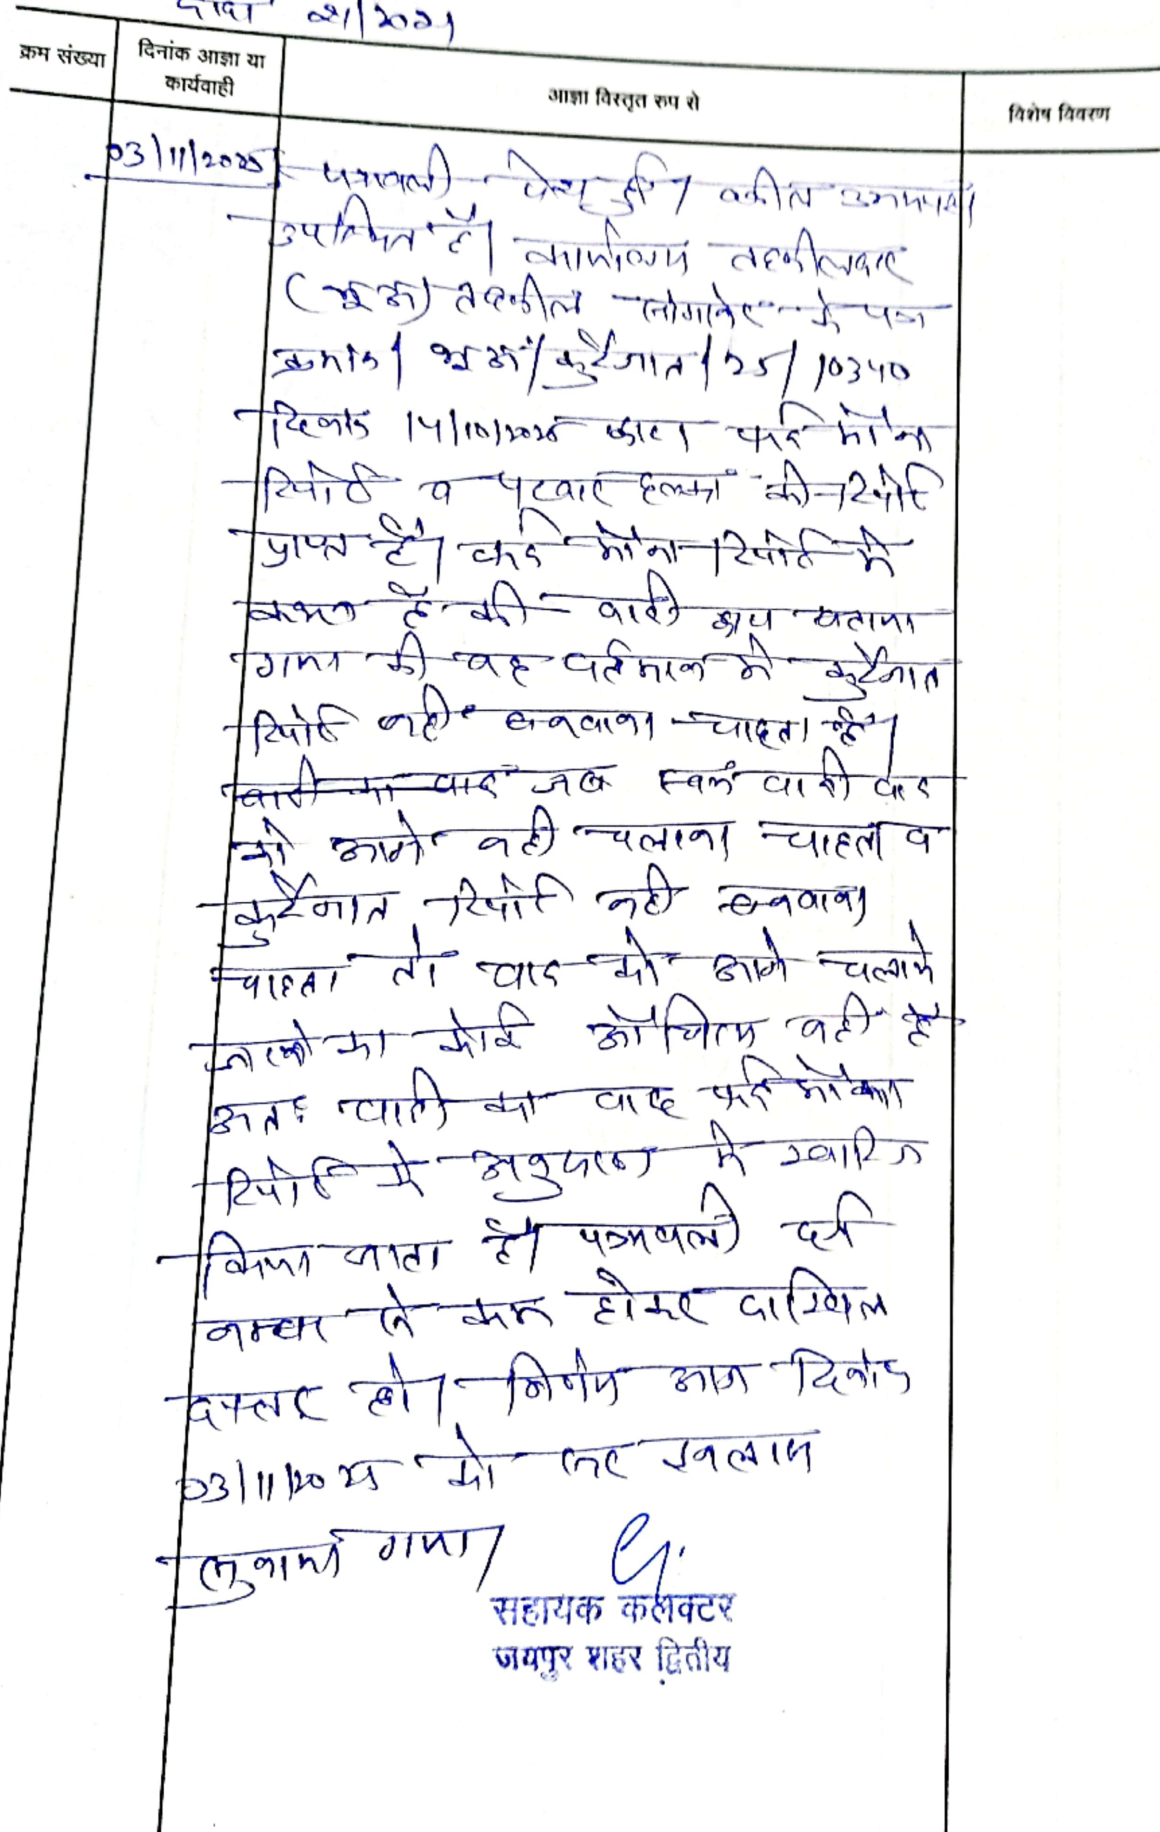 दावा 21/2021
क्रम संख्या
दिनांक आज्ञा या
कार्यवाही
आज्ञा विस्तृत रुप से
विशेष विवरण
03/11/2025 पत्रावली पेश हुई। वकील उभयपक्ष
उपस्थित है। कार्यालय तहसीलदार
(भू.अ) तहसील सांगानेर के पत्र
क्रमांक/भू.अ/कुर्रेजात/25/10340
दिनांक 14/10/2025 द्वारा फर्द मौका
रिपोर्ट व पटवार हल्का की रिपोर्ट
प्राप्त है। फर्द मौका रिपोर्ट में
कथन है की वादी द्वारा बताया
गया की वह वर्तमान में कुर्रेजात
रिपोर्ट नही बनवाना चाहता है।
वादी का वाद जब स्वयं वादी वाद
को आगे नही चलाना चाहता व
कुर्रेजात रिपोर्ट नही बनवाना
चाहता तो वाद को आगे चलाये
जाने का कोई औचित्य नही है
अतः वादी का वाद फर्द मौका
रिपोर्ट के अनुसरण में खारिज
किया जाता है। पत्रावली दर्ज
नम्बर से कम होकर दाखिल
दफ्तर हो। निर्णय आज दिनांक
03/11/2025 को सरे इजलास
सुनाया गया।
सहायक कलक्टर
जयपुर शहर द्वितीय